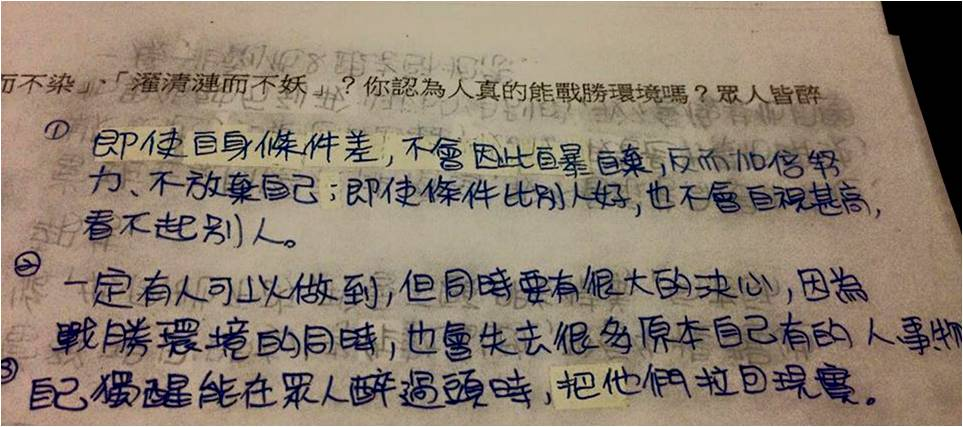 而不染」、「濯清漣而不妖」？你認為人真的能戰勝環境嗎？眾人皆醉
① 即使自身條件差，不會因此自暴自棄，反而加倍努
力、不放棄自己；即使條件比別人好，也不會自視甚高，
看不起別人。
② 一定有人可以做到，但同時要有很大的決心，因為
戰勝環境的同時，也會失去很多原本自己有的人、事物
③ 自己獨醒能在眾人醉過頭時，把他們拉回現實。